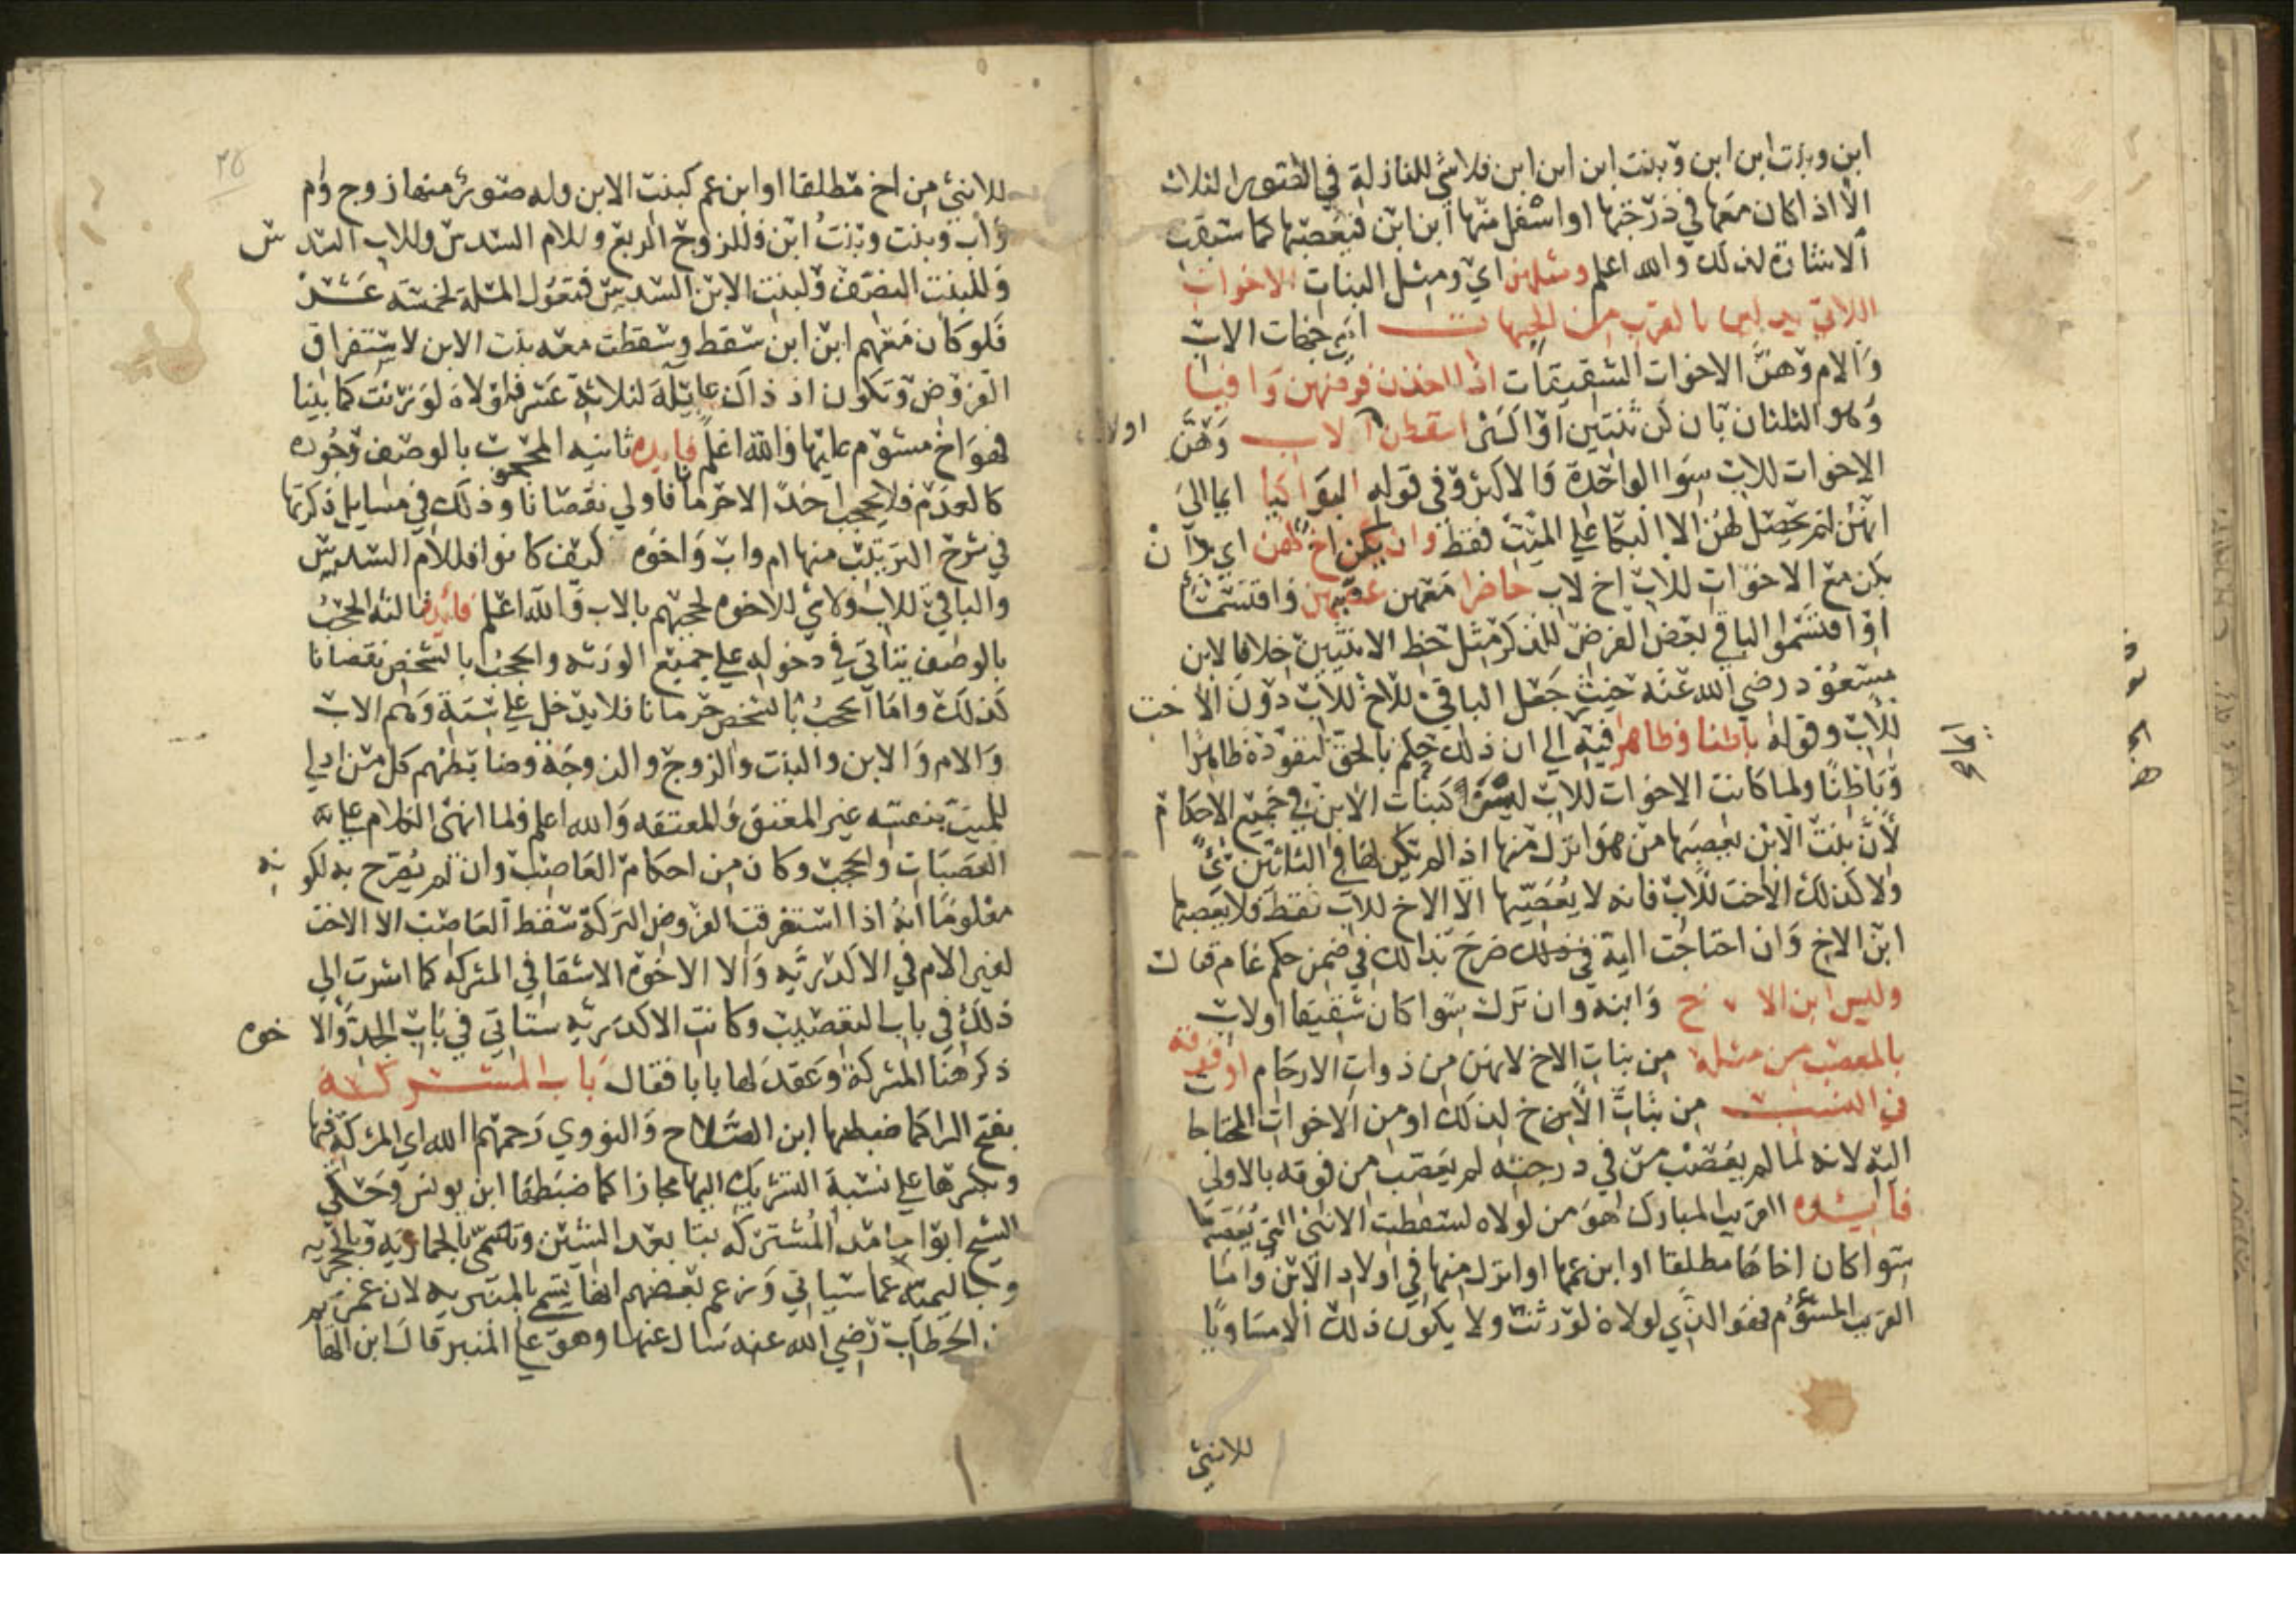 ابن وبنت ابن ابن وبنت ابن ابن ابن فلا شي للنازلة في الصور الثلاث
الا اذا كان معها في درجتها او اسفل منها ابن ابن فيعصبها كما سبقت
الاشارة لذلك والله اعلم ومثلهن اي ومثل البنات الاخوات
اللاتي يدلين بالقرب من الجهات اي جهات الاب
والام وهن الاخوات الشقيقات اذا اخذن فرضهن وافيا
وهو الثلثان بان كن ثنتين او اكثر اسقطن اولاد الاب وهن
الاخوات للاب سوا الواحدة والاكثر وفي قوله البواكيا ايما الي
انهن لم يحصل لهن الا البكا علي الميت فقط وان يكن اخ لهن اي وان
يكن مع الاخوات للاب اخ لاب حاضرا معهن عصبهن واقتسما
او اقتسموا الباقي بعد الفرض للذكر مثل حظ الانثيين خلافا لابن
مسعود رضي الله عنه حيث جعل الباقي للاخ للاب دون الاخت
للاب وقوله باطنا وظاهرا فيه الي ان ذلك حكم بالحق لنفوذه ظاهرا
وباطنا ولما كانت الاخوات للاب ليس كبنات الابن في جميع الاحكام
لان بنت الابن يعصبها من هو انزل منها اذا لم يكن لها في الثلثين شي
ولا كذلك الاخت للاب فانه لا يعصبها الا الاخ للاب فقط فلا يعصبها
ابن الاخ وان احتاجت اليه صرح بذالك في ضمن حكم عام فقال
وليس ابن الاخ وابنه وان ترك سوا كان شقيقا او لاب
بالمعصب من مثله من بنات الاخ لانهن من ذوات الارحام او فوقه
في النسب من بنات الاخ لذلك او من الاخوات المحتاجات
اليه لانه لما لم يعصب من في درجته لم يعصب من فوقه بالاولي
فايده القريب المبارك هو من لولاه لسقطت الانثي التي يعصبها
سوا كان اخاها مطلقا او ابن عمها او انزل منها في اولاد الابن واما
القريب المشؤم فهو الذي لولاه لورثت ولا يكون ذلك الا مساويا
للانثي
للانثي من اخ مطلقا او ابن عم كبنت الابن وله صور منها زوج وام
واب وبنت وبنت ابن فللزوج الربع وللام السدس وللاب السدس
وللبنت النصف ولبنت الابن السدس فتعول المسلة لخمسة عشر
فلو كان معهم ابن ابن سقط وسقطت معه بنت الابن لاستغراق
الفروض وتكون اذ ذاك عايلة لثلاثة عشر فلولاه لورثت كما بينا
فهو اخ مشؤم عليها والله اعلم فايده ثانيه المحجوب بالوصف وجوده
كالعدم فلا يحجب احدا لا حرمانا ولا نقصانا وذلك في مسايل ذكرتها
في شرح الترتيب منها ام واب واخوه كيف كانوا فللام السدس
والباقي للاب ولا شي للاخوه لحجبهم بالاب والله اعلم فايده ثالثه الحجب
بالوصف يتاتي في دخوله علي جميع الورثه والحجب بالشخص نقصانا
كذلك واما الحجب بالشخص حرمانا فلا يدخل علي ستة وهم الاب
والام والابن والبنت والزوج والزوجة وضابطهم كل من ادلي
للميت بنفسه غير المعتق والمعتقه والله اعلم ولما انهي الكلام علي
العصبات والحجب وكان من احكام العاصب وان لم يصرح به لكونه
معلوما انه اذا استغرقت الفروض التركة سقط العاصب الا الاخت
لغير الام في الاكدريه والا الاخوه الاشقا في المشركه كما اشرت الي
ذلك في باب التعصيب وكانت الاكدريه ستاتي في باب الجد والاخوه
ذكر هنا المشركة وعقد لها بابا فقال باب المشتركه
بفتح الرا كما ضبطها ابن الصلاح والنووي رحمهما الله اي المشركة فيها
وبكسرها علي نسبة التشريك اليها مجازا كما ضبطها ابن يونس وحكي
الشيخ ابو احامد المشتركه بتا بعد الشين وتسمي بالحماريه وبالحجريه
وباليميه عما سياتي وزعم بعضهم انها تسمي بالمنبريه لان عمر بن
الخطاب رضي الله عنه سال عنها وهو علي المنبر قال ابن الها